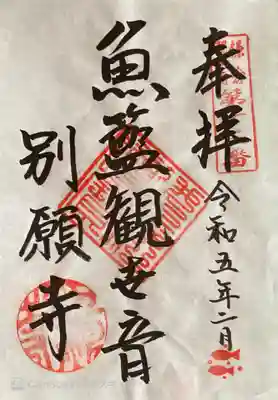 奉拝
令和五年二月
魚籃観世音
別願寺